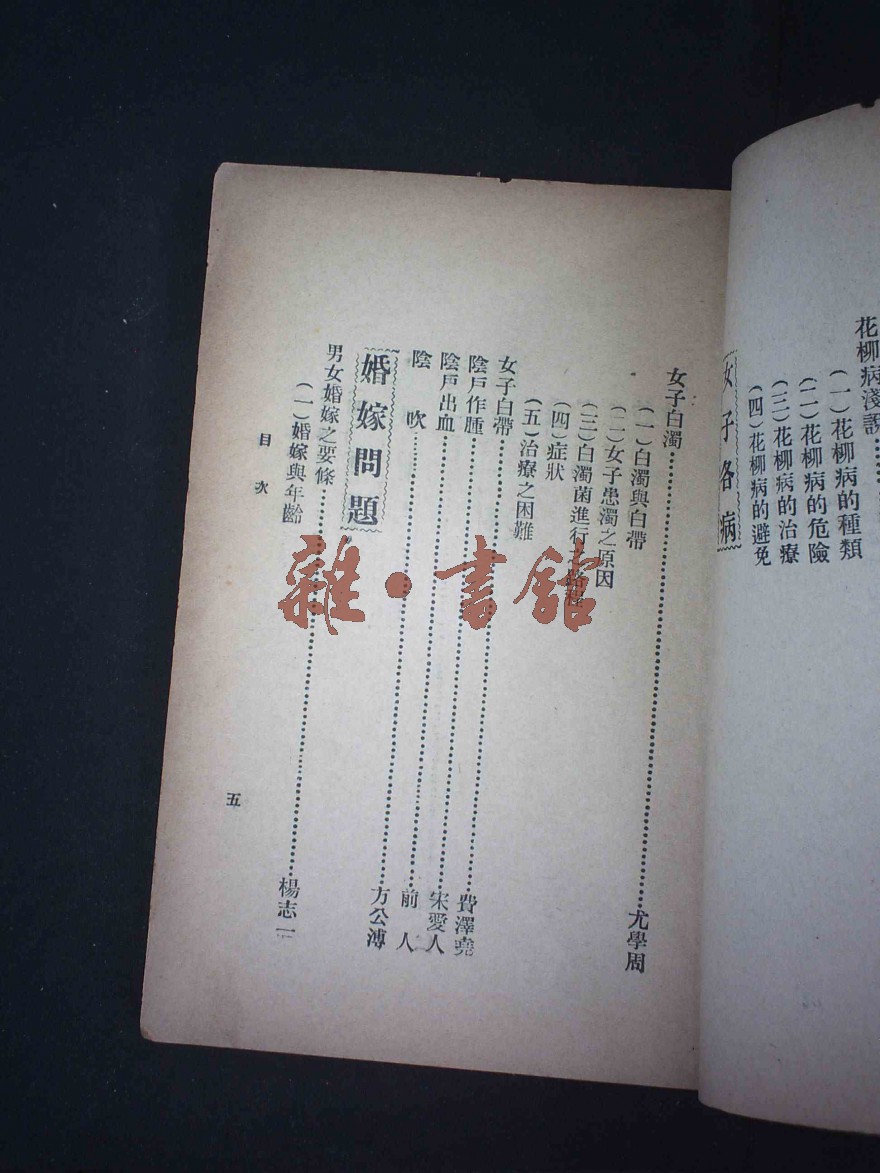 花柳病淺說
(一)花柳病的種類
(二)花柳病的危險
(三)花柳病的治療
(四)花柳病的避免
女子各病
女子白濁 尤學周
(一)白濁與白帶
(二)女子患濁之原因
(三)白濁菌進行之路程
(四)症狀
(五)治療之困難
女子白帶 費澤堯
陰戶作腫 宋愛人
陰戶出血 前人
陰吹 方公溥
婚嫁問題
男女婚嫁之要條 楊志一
(一)婚嫁與年齡
目次
五
雜·書館